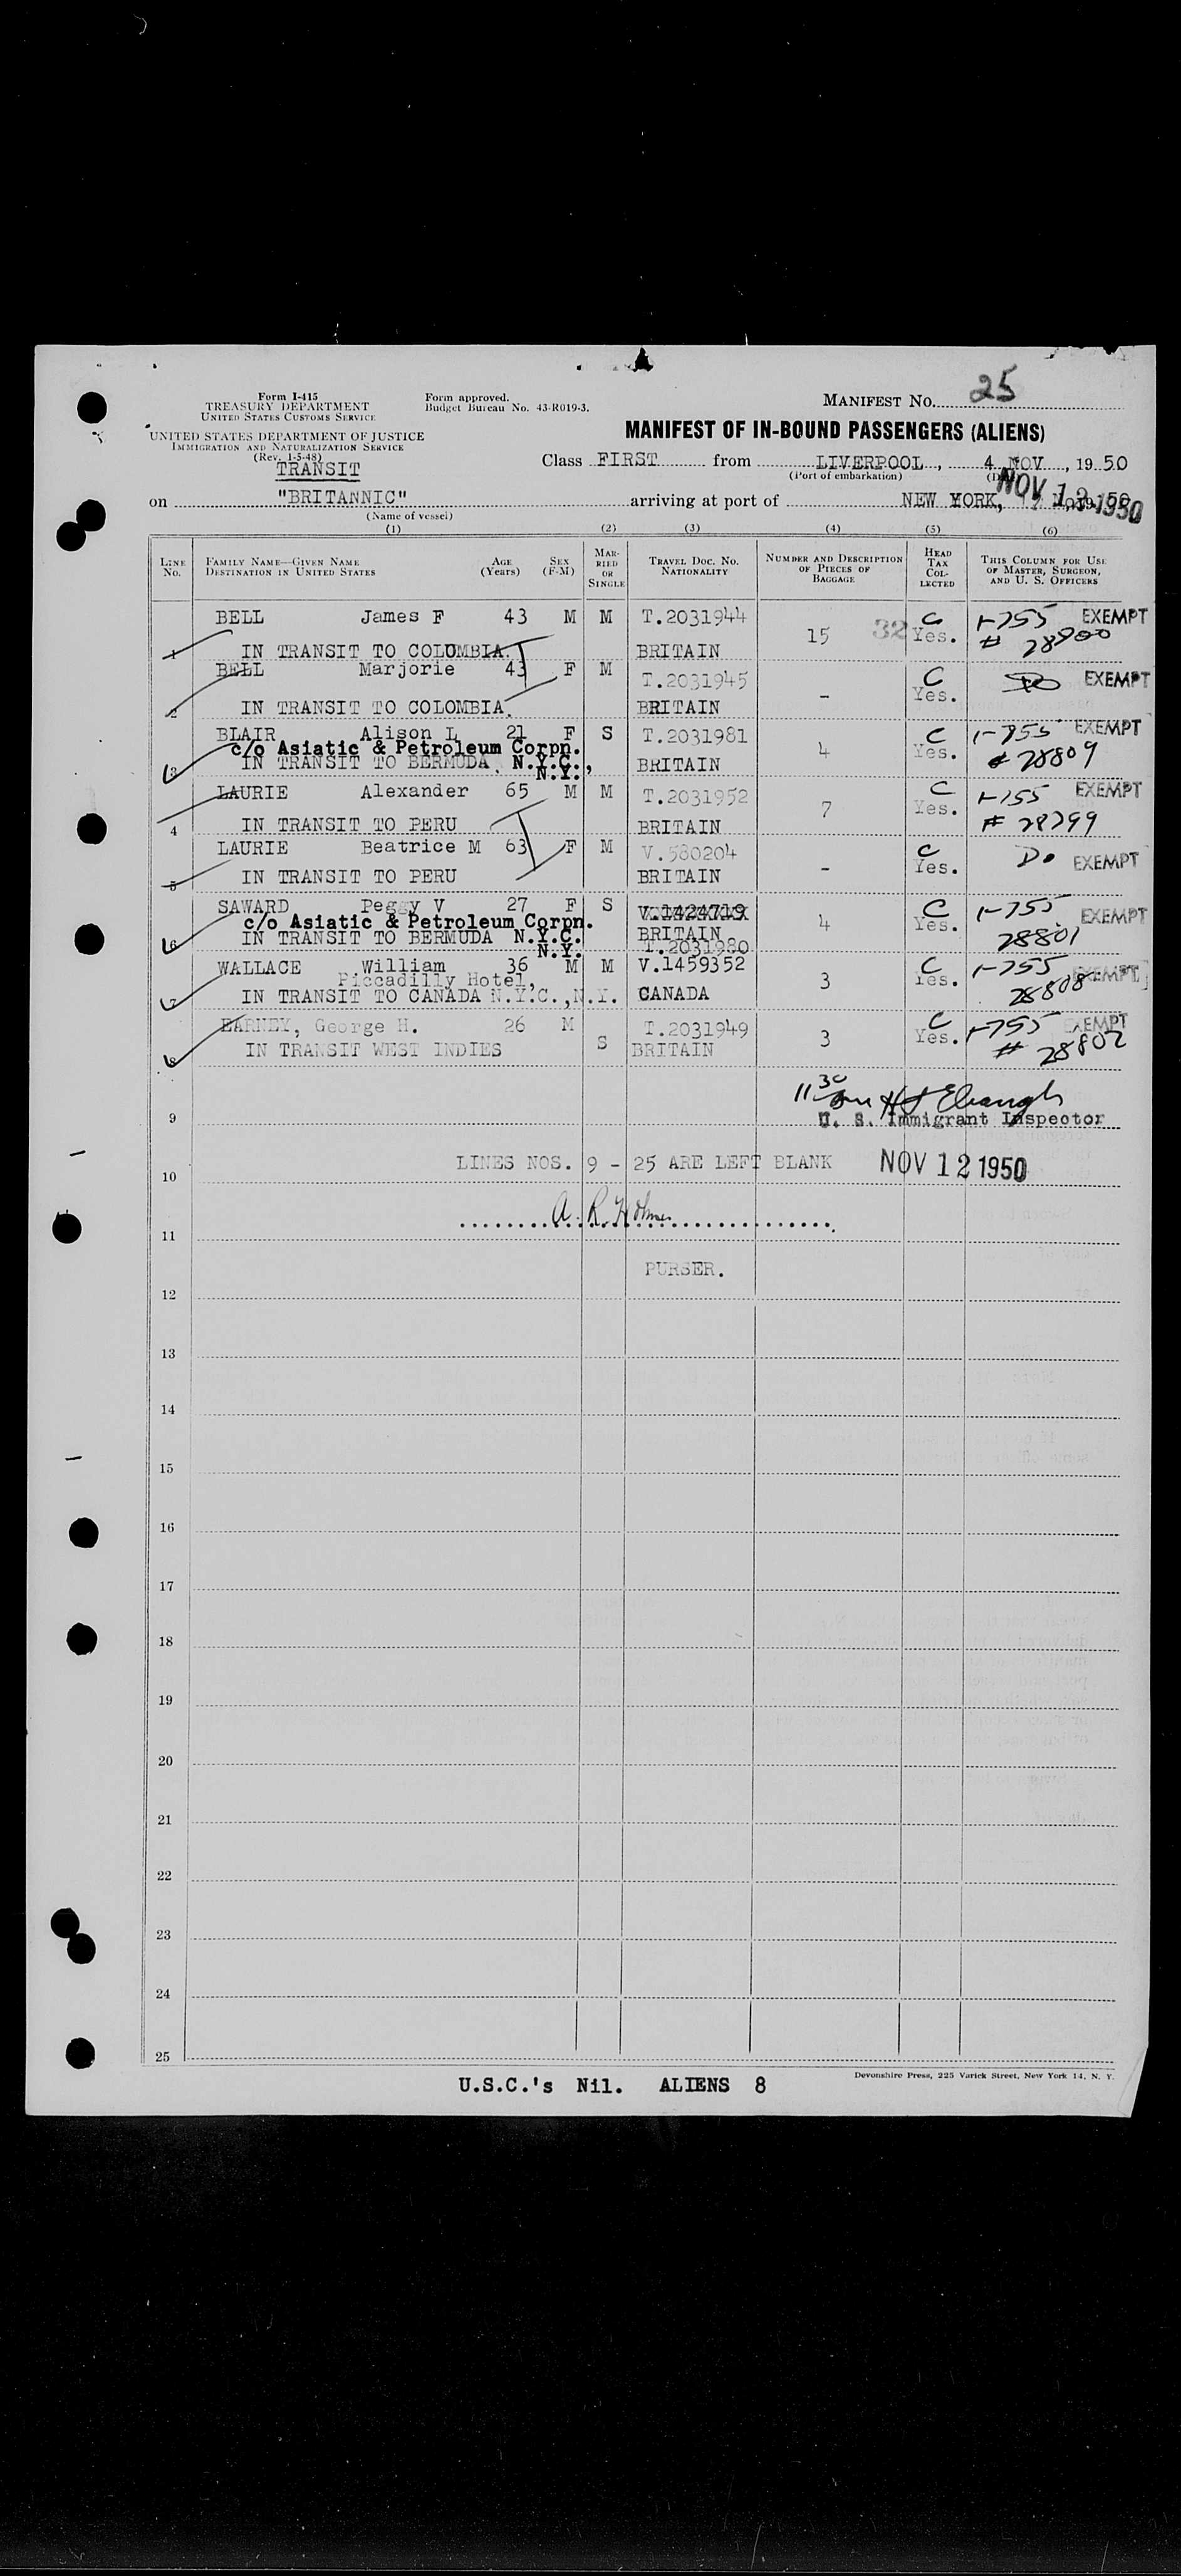 25
Form I-415
TREASURY DEPARTMENT
UNITED STATES CUSTOMS SERVICE
Form approved.
Budget Bureau No. 43-R019-3.
MANIFEST NO. 25
UNITED STATES DEPARTMENT OF JUSTICE
IMMIGRATION AND NATURALIZATION SERVICE
(Rev. 1-5-48)
TRANSIT
MANIFEST OF IN-BOUND PASSENGERS (ALIENS)
Class FIRST from LIVERPOOL, 4 NOV, 1950
(Port of embarkation)
on "BRITANNIC" arriving at port of NEW YORK, NOV 12 1950
(Name of vessel)
(1) (2) (3) (4) (5) (6)
LINE No. FAMILY NAME—GIVEN NAME DESTINATION IN UNITED STATES AGE (Years) SEX (F-M) MARRIED OR SINGLE TRAVEL DOC. NO. NATIONALITY NUMBER AND DESCRIPTION OF PIECES OF BAGGAGE HEAD TAX COLLECTED THIS COLUMN FOR USE OF MASTER, SURGEON, AND U. S. OFFICERS
BELL James F 43 M M T.2031944 15 32 C Yes. 1-755 EXEMPT
1 IN TRANSIT TO COLOMBIA. BRITAIN # 28900
BELL Marjorie 43 F M T.2031945 - C Yes. Do EXEMPT
2 IN TRANSIT TO COLOMBIA. BRITAIN
BLAIR Alison L 21 F S T.2031981 4 C Yes. 1-755 EXEMPT
c/o Asiatic & Petroleum Corpn.
3 IN TRANSIT TO BERMUDA N.Y.C., N.Y. BRITAIN # 28809
LAURIE Alexander 65 M M T.2031952 7 C Yes. 1-755 EXEMPT
4 IN TRANSIT TO PERU BRITAIN # 28799
LAURIE Beatrice M 63 F M V.580204 - C Yes. Do EXEMPT
5 IN TRANSIT TO PERU BRITAIN
SAWARD Peggy V 27 F S V.1424719 4 C Yes. 1-755 EXEMPT
c/o Asiatic & Petroleum Corpn.
6 IN TRANSIT TO BERMUDA N.Y.C. N.Y. BRITAIN T.2031980 28801
WALLACE William 36 M M V.1459352 3 C Yes. 1-755 EXEMPT
Piccadilly Hotel,
7 IN TRANSIT TO CANADA N.Y.C., N.Y. CANADA 28808
EARNEY, George H. 26 M S T.2031949 3 C Yes. 1-755 EXEMPT
8 IN TRANSIT WEST INDIES BRITAIN # 28802
11 30
9 U. S. Immigrant Inspector
LINES NOS. 9 - 25 ARE LEFT BLANK NOV 12 1950
10
A. R. Holmes
11
PURSER.
12
13
14
15
16
17
18
19
20
21
22
23
24
25
U.S.C.'s Nil. ALIENS 8
Devonshire Press, 225 Varick Street, New York 14, N. Y.